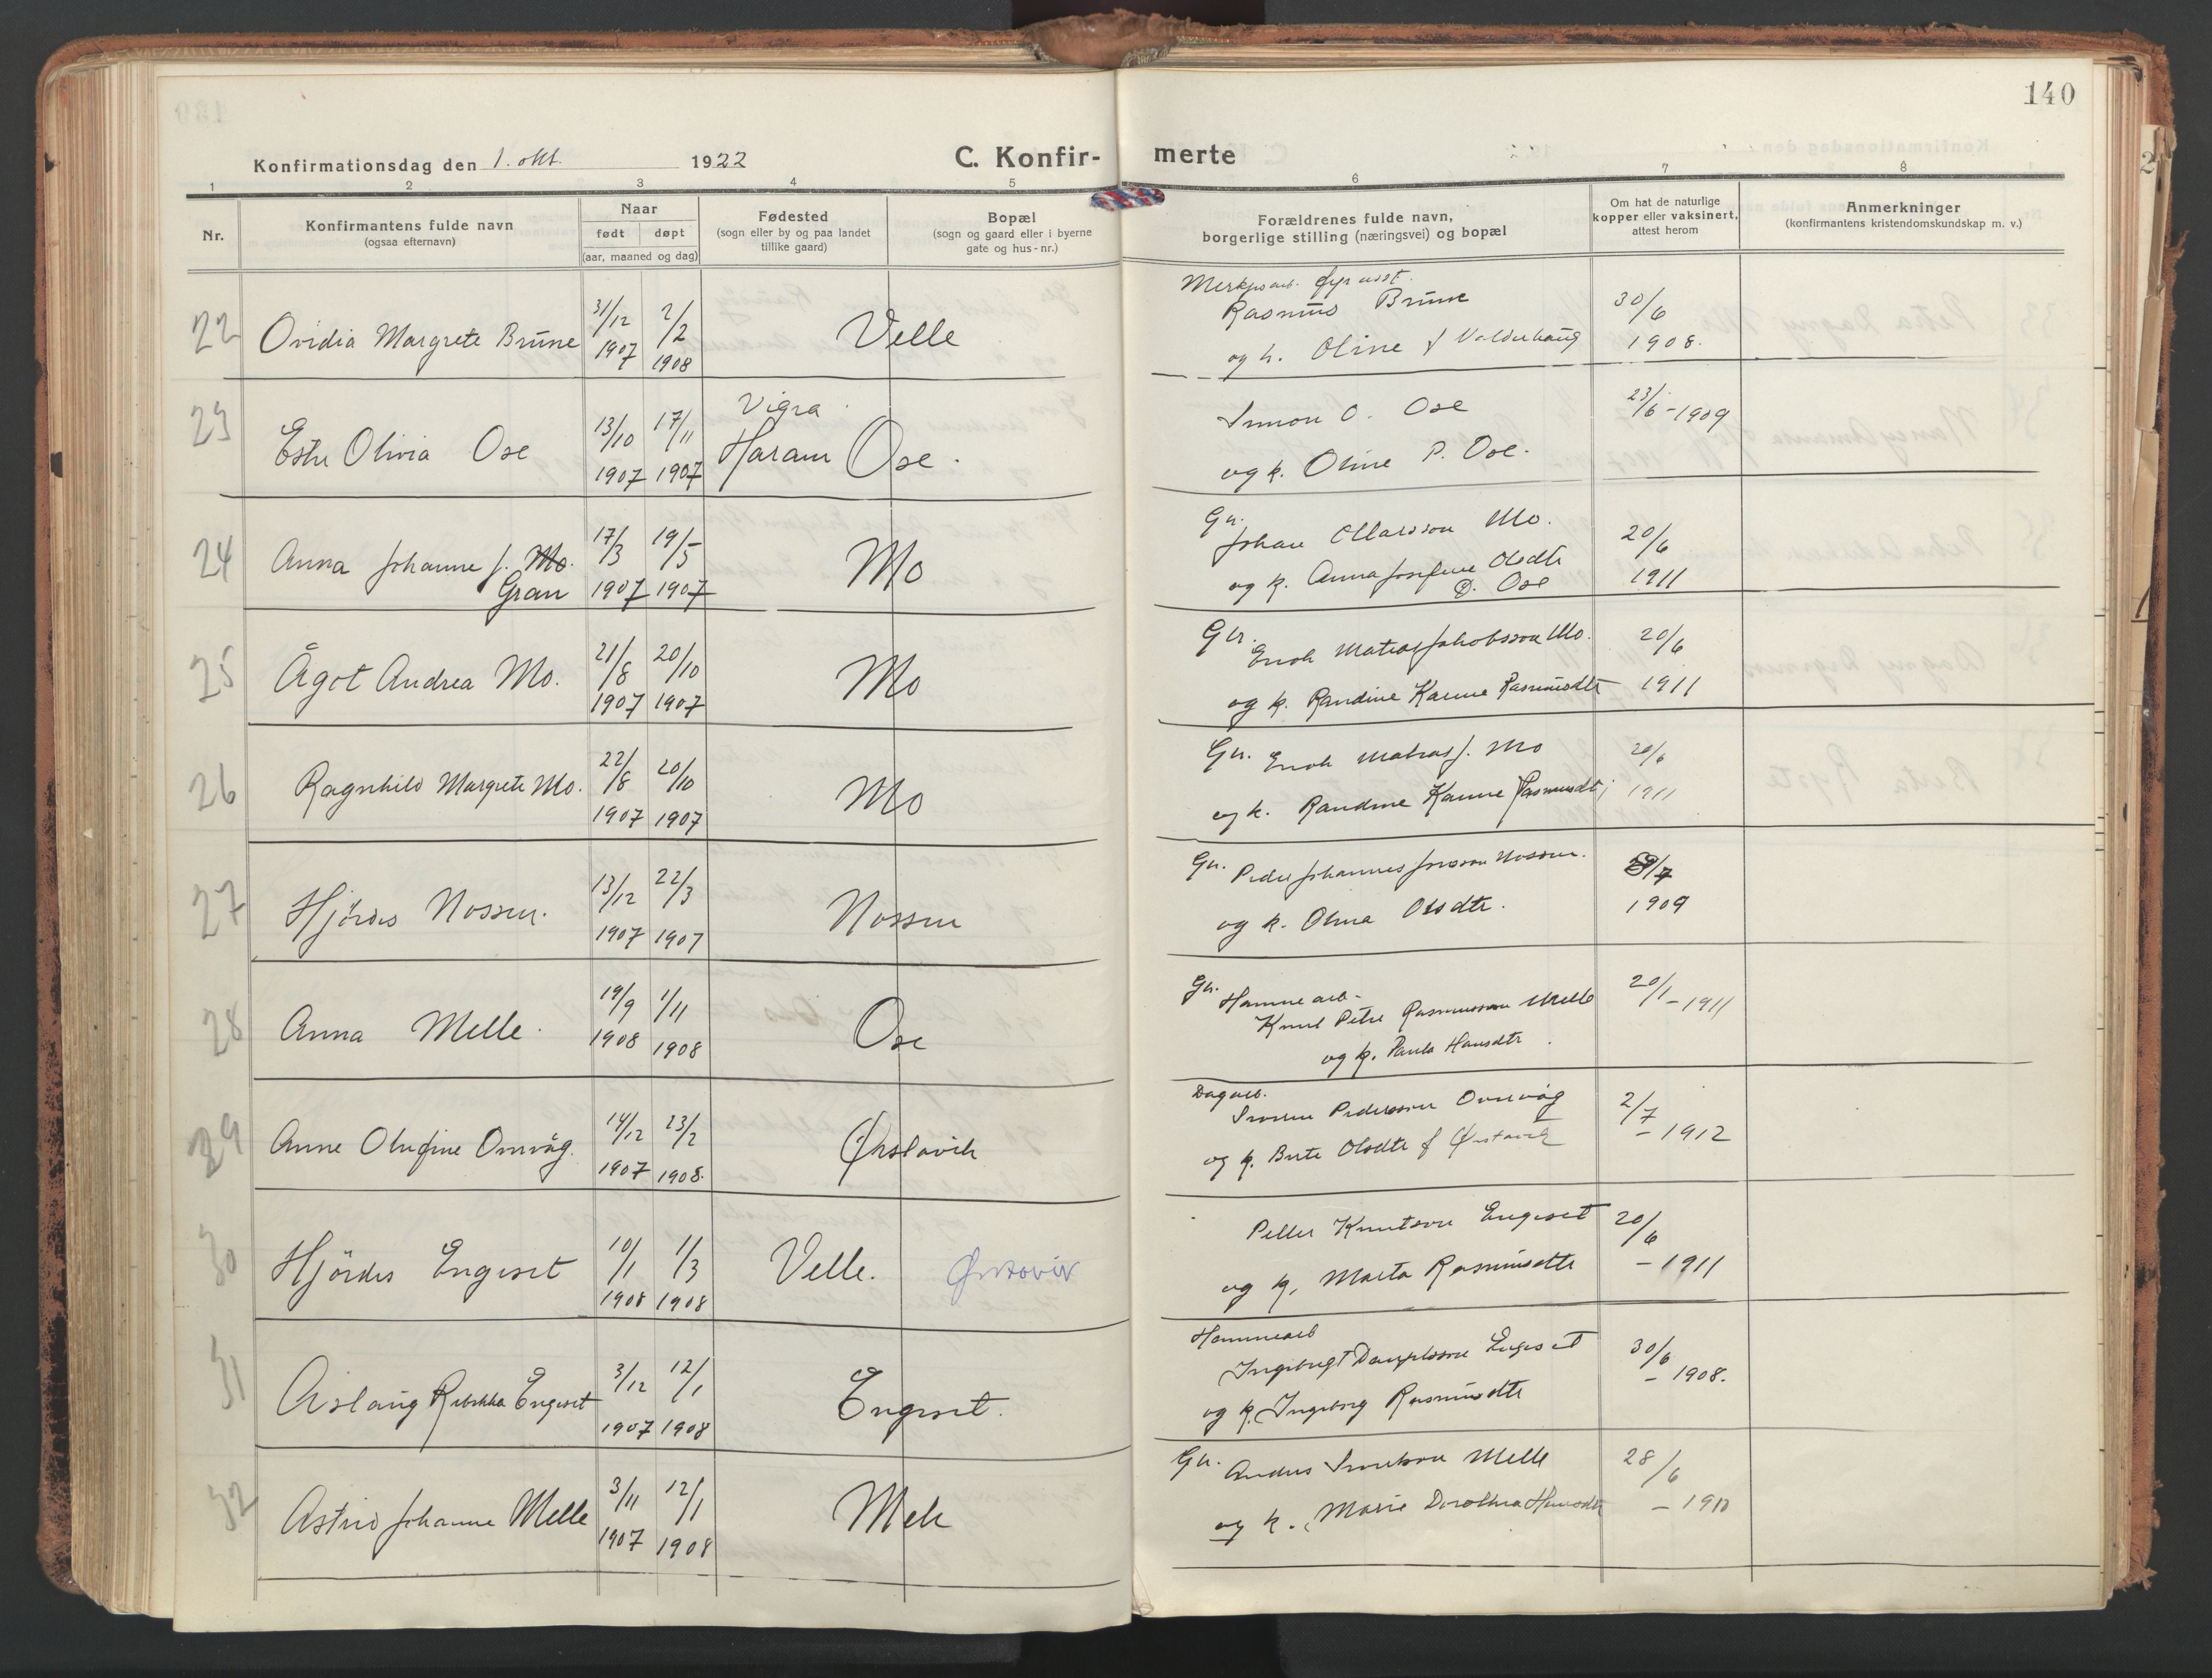 140
Konfirmationsdag den 1. okt. 1922
C. Konfir-
merte
1 2 3 4 5 6 7 8
Nr.
Konfirmantens fulde navn
(ogsaa efternavn)
Naar
født døpt
(aar, maaned og dag)
Fødested
(sogn eller by og paa landet
tillike gaard)
Bopæl
(sogn og gaard eller i byerne
gate og hus-nr.)
Forældrenes fulde navn,
borgerlige stilling (næringsvei) og bopæl
Om hat de naturlige
kopper eller vaksinert,
attest herom
Anmerkninger
(konfirmantens kristendomskundskap m. v.)
22 Ovidia Margrete Brune 31/12 1907 2/2 1908 Velle
Rasmus Brune
og h. Oline f Valderhaug
30/6 1908.
23 Ester Olivia Ose 13/10 1907 17/11 1907 Vigra Haram Ose.
Simon O. Ose
og k. Oline P. Ose.
23/6 - 1909
24 Anna Johanne J. Mo. Gran 17/3 1907 19/5 1907 Mo
Gr. Johan Ollarsson Mo.
og k. Anna Josefine Olsdtr
D. Ose
20/6 1911
25 Ågot Andrea Mo. 21/8 1907 20/10 1907 Mo
Gr. Enok Matias Jakobsson Mo.
og k. Randine Karine Rasmusdtr
20/6 1911
26 Ragnhild Margrete Mo. 22/8 1907 20/10 1907 Mo
Gr. Enok Matias J. Mo
og k. Randine Karine Rasmusdtr
20/6 1911
27 Hjördis Nossen. 13/12 1907 22/3 1907 Nossen
Gr. Peder Johannes Jonsson Nossen.
og k. Olina Olsdtr.
/7 1909
28 Anna Melle. 19/9 1908 1/11 1908 Ose
Gr. Hammearb.
Knut Peter Rasmusson Melle
og k. Paula Hansdtr.
20/1 - 1911
29 Anne Olufine Omvåg. 14/12 1907 23/2 1908. Ørstavik
Dagarb.
Pedersson
og k. Berte Olsdtr f Ørstavik
2/7 - 1912
30 Hjördis Engeset 10/1 1908 1/3 1908 Velle. Ørstavik
Petter Knutson Engeset
og k. Marta Rasmusdtr
20/6 - 1911
31 Aslaug Rebekka Engeset 3/12 1907 12/1 1908 Engeset.
Hammearb
Engeset
og k. Ingeborg Rasmusdtr
30/6 - 1908.
32 Astrid Johanne Melle 3/11 1907 12/1 1908 Mele
Gr. Anders Melle
og k. Marie Dorothea Hansdtr
28/6